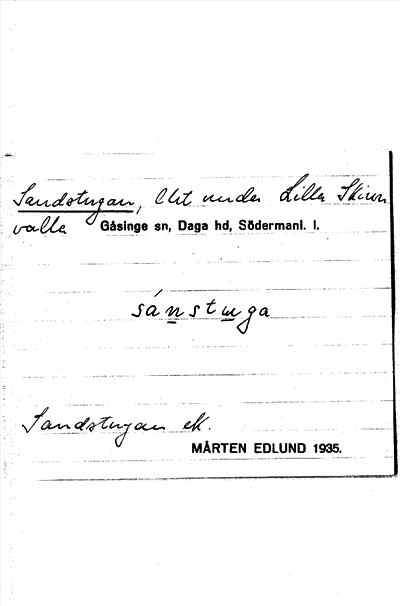 Sandstugan, lht under Lilla Skiren
valla Gåsinge sn, Daga hd, Södermanl. l.
sánstuga
Sandstugan ek.
MÅRTEN EDLUND 1935.